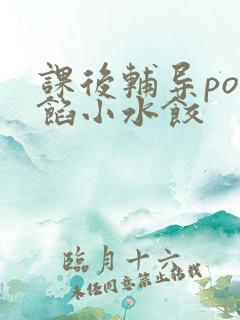 課後輔导po
餡小水餃
臨月十六
未经同意禁止搭载